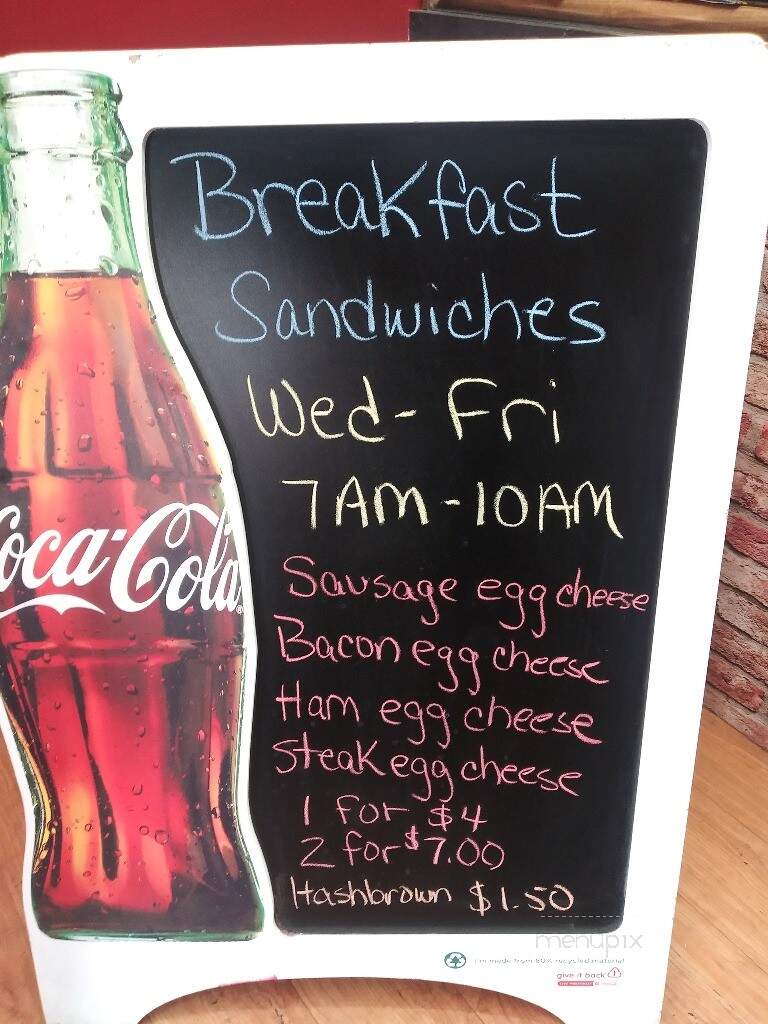 Breakfast
Sandwiches
Wed - Fri
7AM - 10AM
Sausage egg cheese
Bacon egg cheese
Ham egg cheese
Steak egg cheese
1 for $4
2 for $7.00
Hashbrown $1.50
Coca-Cola
menupix
I'm made from 80% recycled material
give it back